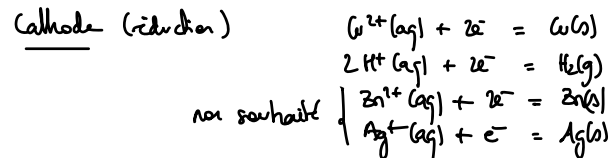 Cathode (réduction)
Cu²⁺(aq) + 2e⁻ = Cu(s)
2 H⁺(aq) + 2e⁻ = H₂(g)
non souhaité { Zn²⁺(aq) + 2e⁻ = Zn(s)
Ag⁺(aq) + e⁻ = Ag(s)